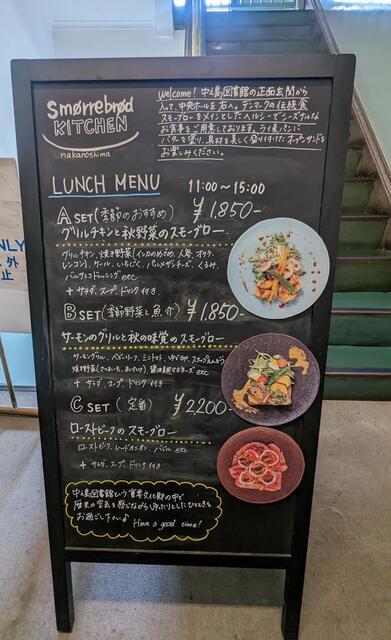 Smørrebrød
KITCHEN
nakanoshima
Welcome! 中之島図書館の正面玄関から
入って、中央ホールを右へ。デンマークの伝統食
スモーブローをメインとしたヘルシーでシーズナルな
お食事をご用意しております。ライ麦パンに
バターを塗り、具材を美しく盛り付けたオープンサンドを
お楽しみください。
LUNCH MENU 11:00〜15:00
A SET (季節のおすすめ) ¥1,850-
グリルチキンと秋野菜のスモーブロー
グリルチキン、焼き野菜(インカのめざめ、人参、オクラ、
レンコン)、ケール、いちじく、パルメザンチーズ、くるみ、
バルサミコドレッシング etc
+ サラダ、スープ、ドリンク付き
B SET (季節野菜と魚介) ¥1,850-
サーモンのグリルと秋の味覚のスモーブロー
サーモングリル、ベビーリーフ、ミニトマト、ゆで卵、スナップえんどう
+ サラダ、スープ、ドリンク付き
C SET (定番) ¥2,200-
ローストビーフのスモーブロー
ローストビーフ、レッドオニオン、バジル etc
+ サラダ、スープ、ドリンク付き
中之島図書館という重要文化財の中で
歴史の空気を感じながらゆったりとしたひとときを
お過ごし下さい♪ Have a good time!
ONLY
外
止